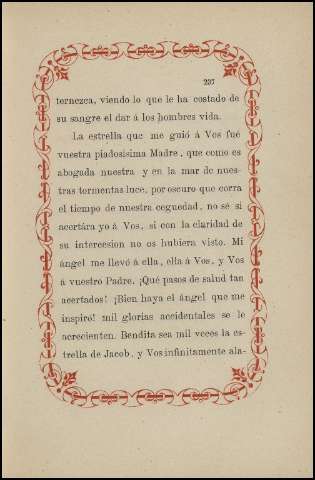 237
ternezca, viendo lo que le ha costado de
su sangre el dar á los hombres vida.
La estrella que me guió á Vos fué
vuestra piadosísima Madre, que como es
abogada nuestra y en la mar de nues-
tras tormentas luce, por oscuro que corra
el tiempo de nuestra ceguedad, no sé si
acertára yo á Vos, si con la claridad de
su intercesion no os hubiera visto. Mi
ángel me llevó á ella, ella á Vos, y Vos
á vuestro Padre. ¡Qué pasos de salud tan
acertados! ¡Bien haya el ángel que me
inspiró! mil glorias accidentales se le
acrecienten. Bendita sea mil veces la es-
trella de Jacob, y Vos infinitamente ala-